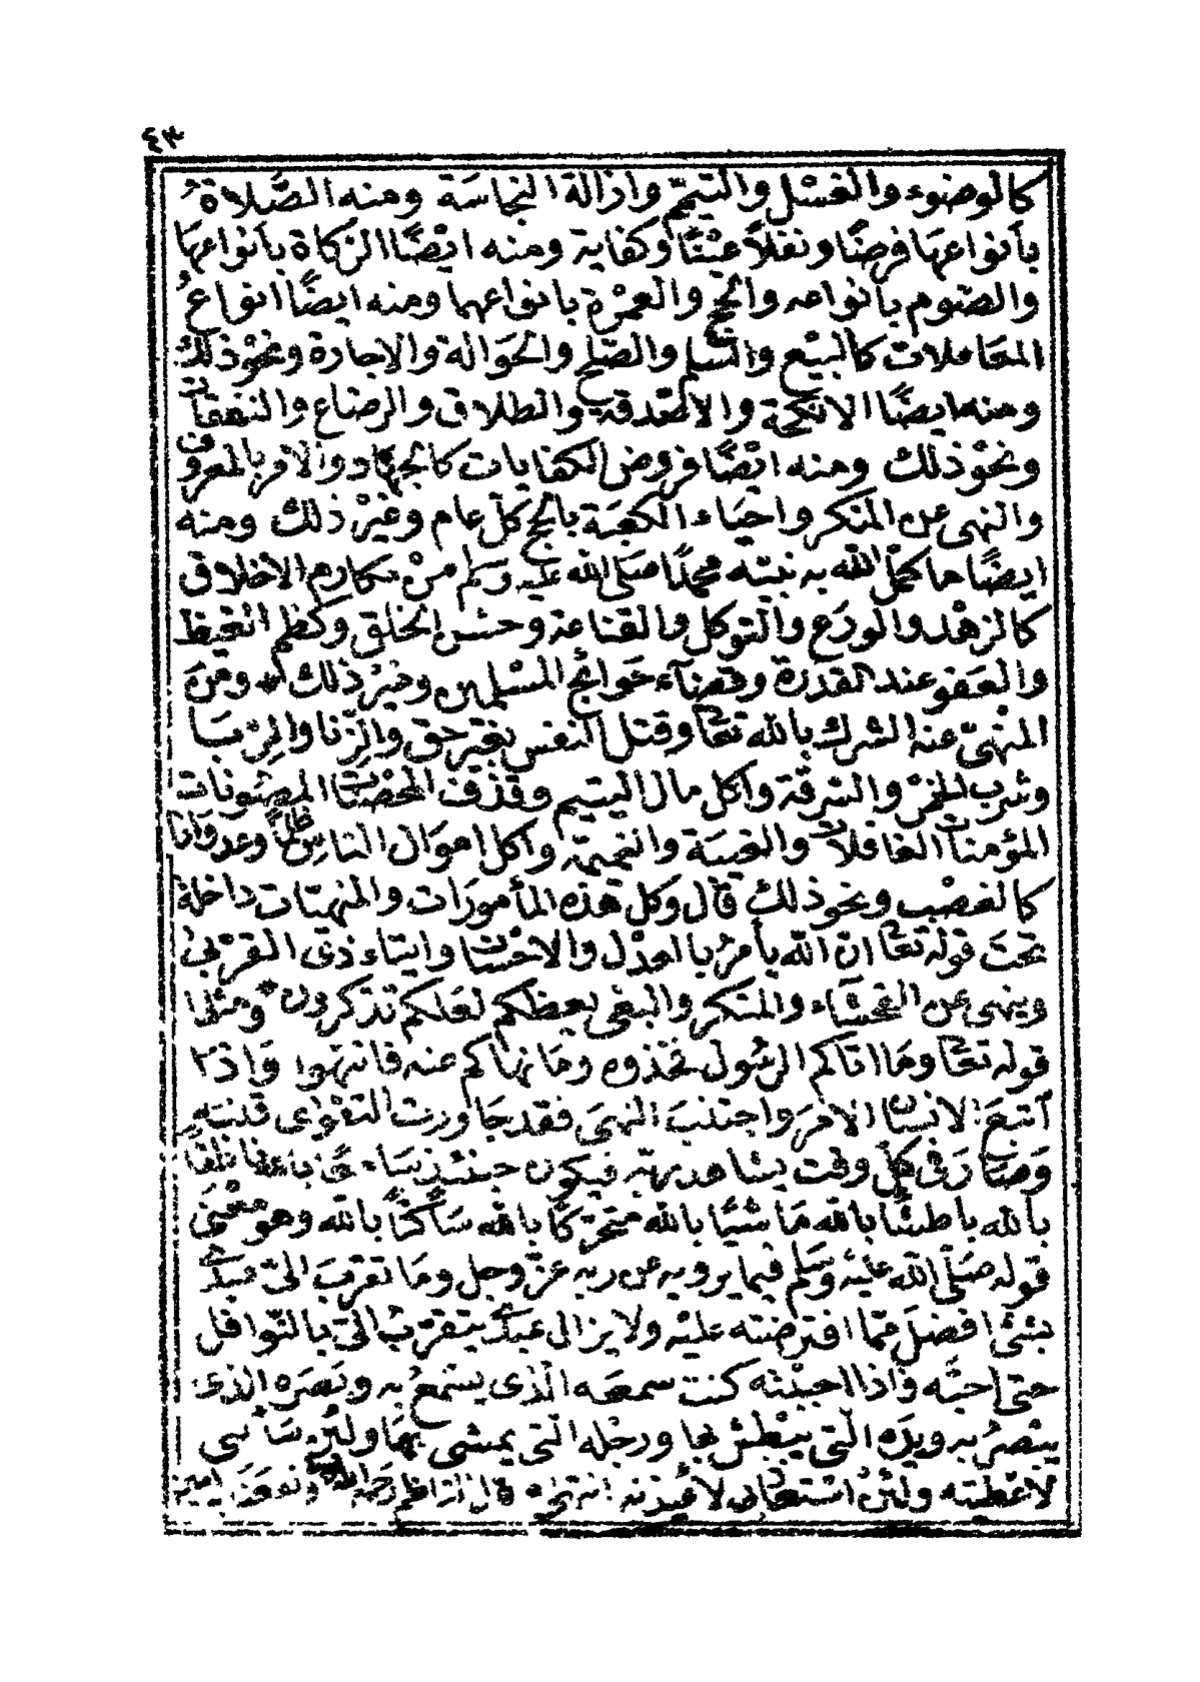 ٤٣
كالوضوء والغسل والتيمم وازالة النجاسة ومنه الصلاة
بأنواعها فرضًا ونفلاً عينًا وكفاية ومنه ايضًا الزكاة بأنواعها
والصوم بأنواعه والحج والعمرة بانواعهما ومنه ايضًا انواع
المعاملات كالبيع والسلم والصلح والحوالة والاجارة ونحو ذلك
ومنه ايضًا الانكحة والاصدقة والطلاق والرضاع والنفقات
ونحو ذلك ومنه ايضًا فروض الكفايات كالجهاد والامر بالمعروف
والنهى عن المنكر واحياء الكعبة بالحج كل عام وغير ذلك ومنه
ايضًا ما كمل الله به نبيه محمدًا صلى الله عليه وسلم من مكارم الاخلاق
كالزهد والورع والتوكل والقناعة وحسن الخلق وكظم الغيظ
والعفو عند المقدرة وقضآء حوائج المسلمين وغير ذلك ومن
المنهى عنه الشرك بالله تعا وقتل النفس بغير حق والزنا والربا
وشرب الخمر والسرقة واكل مال اليتيم وقذف المحصنات المصونات
المؤمنات الغافلات والغيبة والنميمة واكل اموال الناس ظلمًا وعدوانا
كالغصب ونحو ذلك قال وكل هذه المأمورات والمنهيات داخلة
تحت قوله تعا ان الله يأمر بالعدل والاحسان وايتاء ذى القربى
وينهى عن الفحشاء والمنكر والبغى يعظكم لعلكم تذكرون ومثلها
قوله تعا وما اتاكم الرسول فخذوه وما نهاكم عنه فانتهوا واذا
اتبع الانسان الامر واجتنب النهى فقد جاورت التقوى قلبه
وصار فى كل وقت يشاهد ربه فيكون حينئذ
بالله باطشًا بالله ماشيًا بالله متحركًا بالله ساكنًا بالله وهو معنى
قوله صلى الله عليه وسلم فيما يرويه عن ربه عز وجل وما تقرب الى عبدى
بشئ افضل مما افترضته عليه ولا يزال عبدى يتقرب الى بالنوافل
حتى احبه فاذا احببته كنت سمعه الذى يسمع به وبصره الذى
يبصر به ويده التى يبطش بها ورجله التى يمشى بها ولئن سألنى
لاعطينه ولئن استعاذنى لأعيذنه انتهى قال الناظم رحمه الله ونفعنا امين